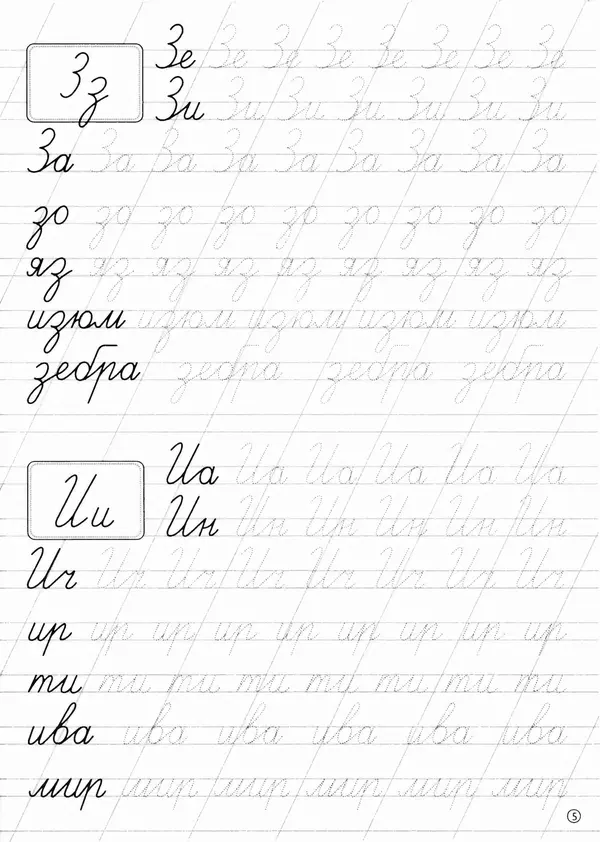 Зз
Зе Зе Зе Зе Зе Зе Зе Зе
Зи Зи Зи Зи Зи Зи Зи
За За За За За За За За За
зо зо зо зо зо зо зо зо зо
яз яз яз яз яз яз яз яз яз
изюм изюм изюм изюм изюм
зебра зебра зебра зебра
Ии
Иа Иа Иа Иа Иа Иа
Ин Ин Ин Ин Ин Ин
Ич Ич Ич Ич Ич Ич Ич Ич
ир ир ир ир ир ир ир ир ир
ти ти ти ти ти ти ти ти
ива ива ива ива ива ива
мир мир мир мир мир мир
5